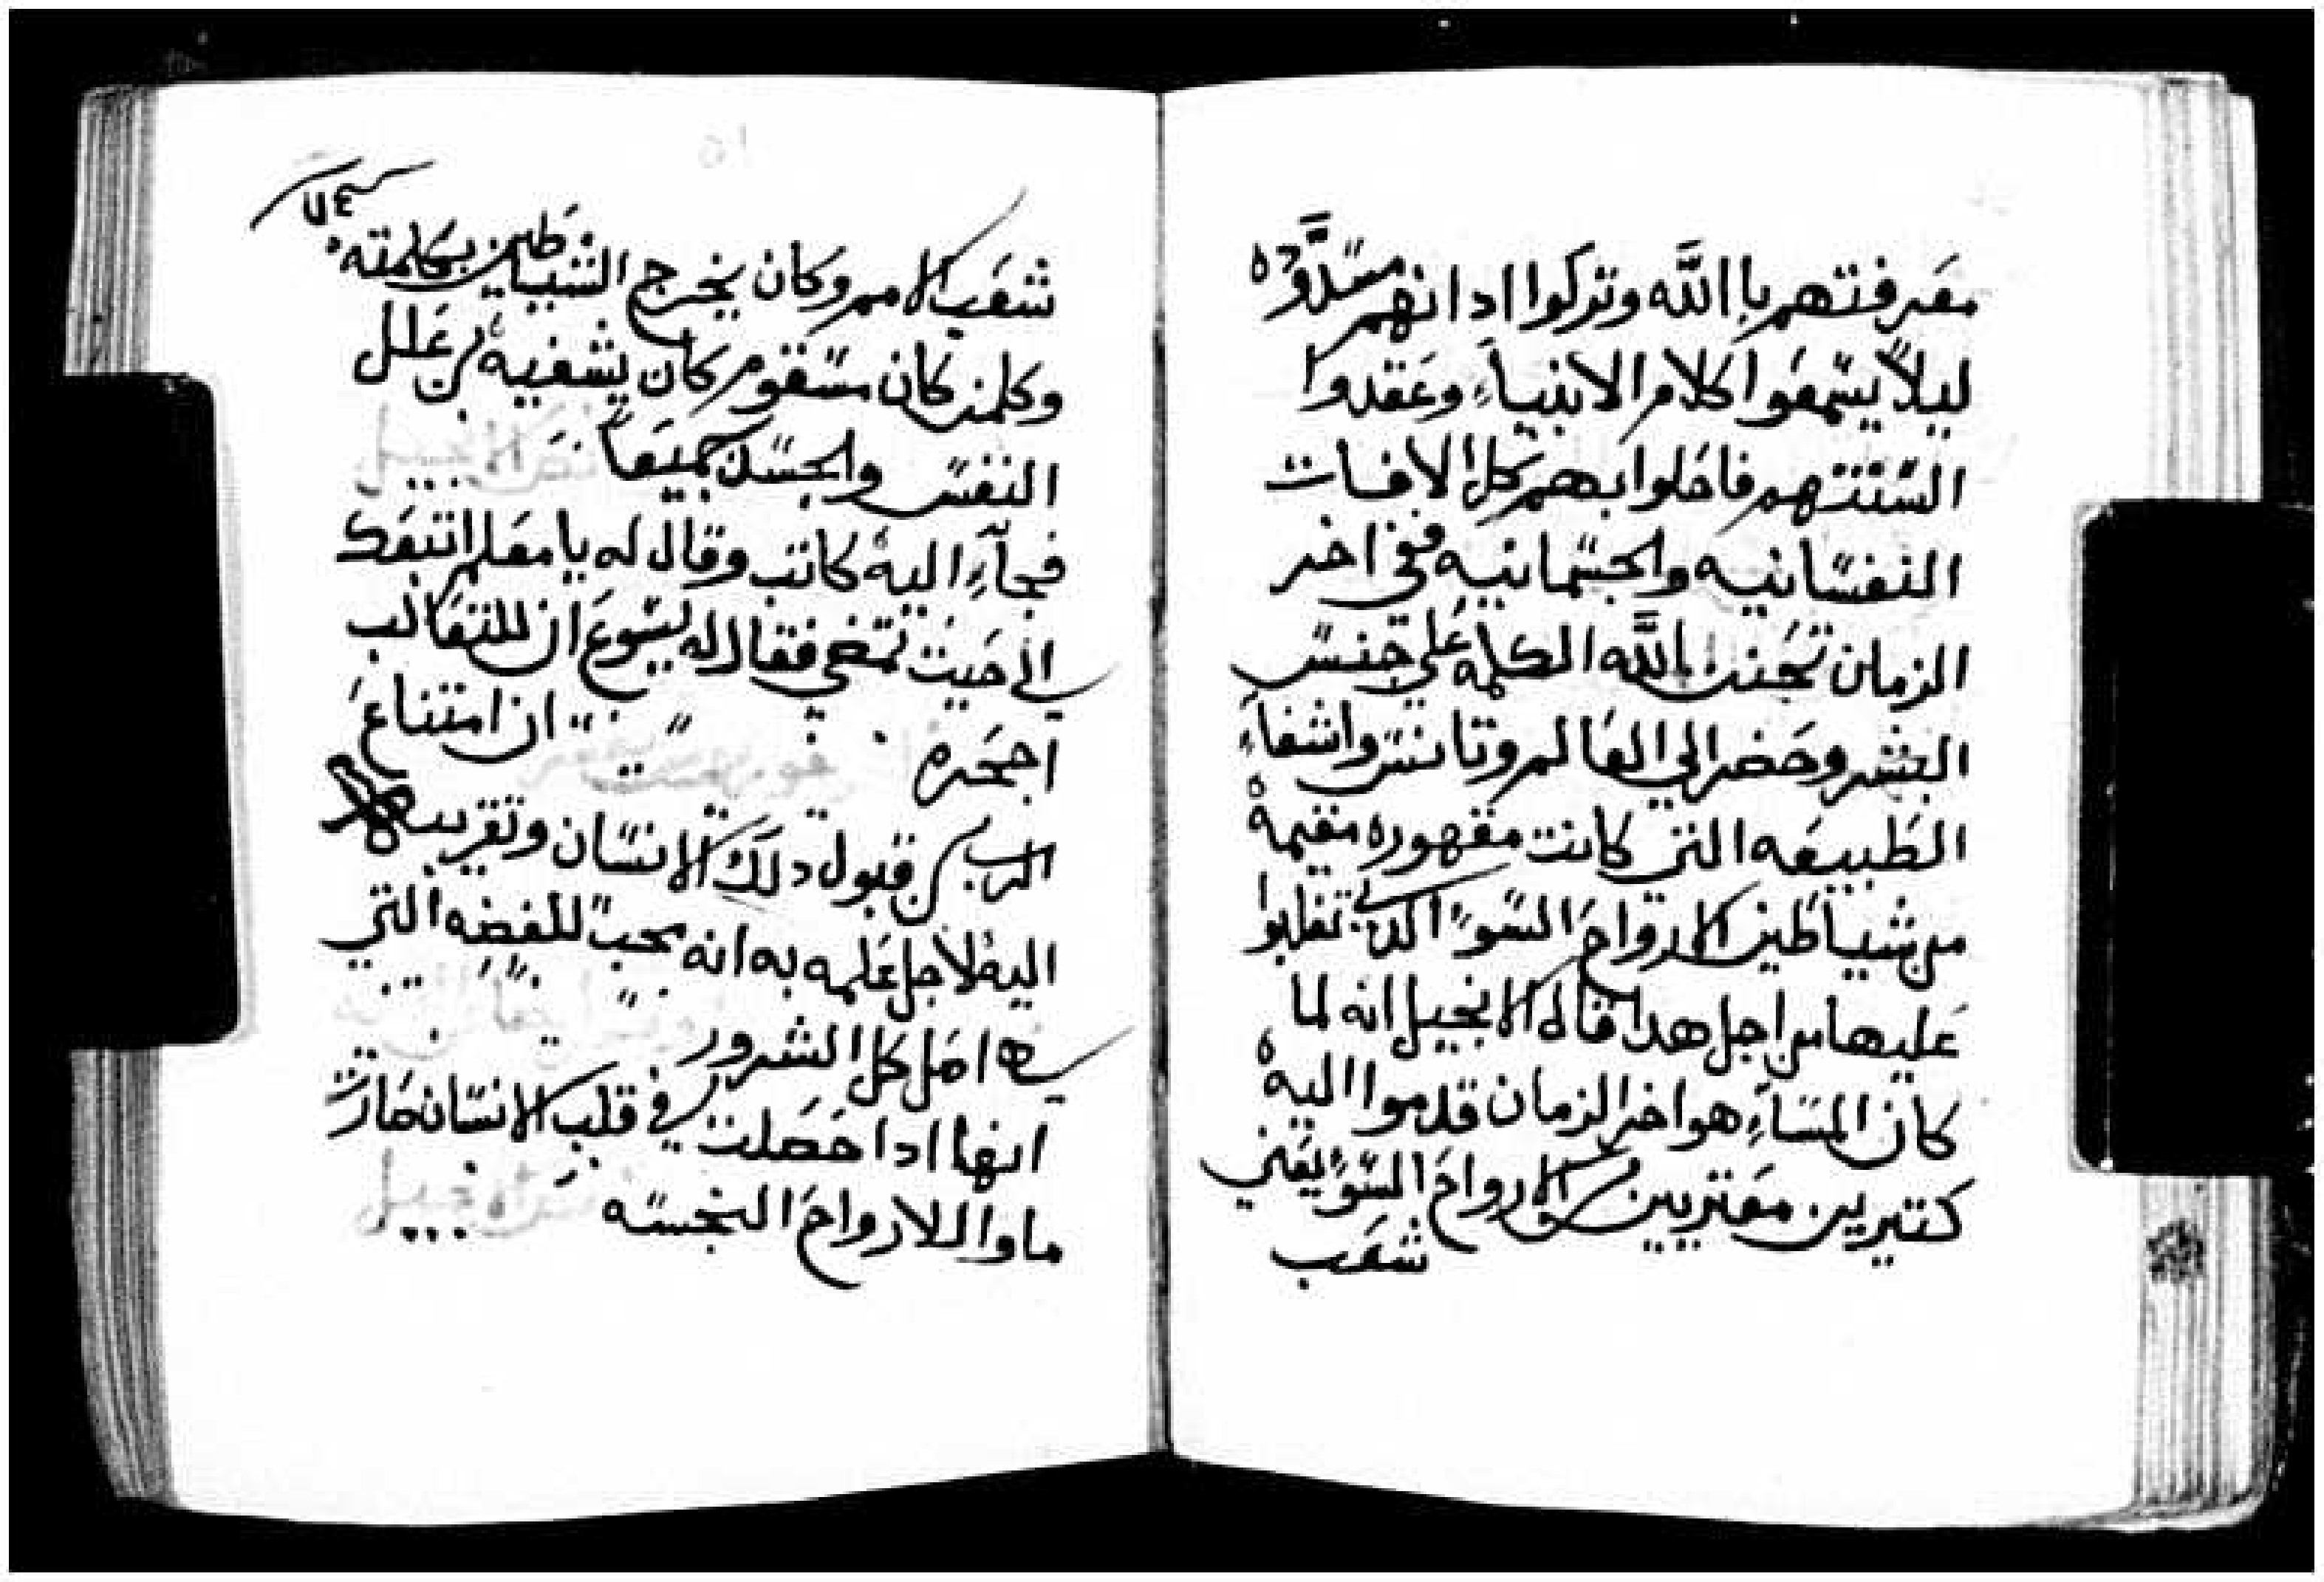 معرفتهم باالله وتركوا ادانهم مسدوده
ليلا يسمعوا كلام الانبياء وعقدوا
السنتهم فاحلوا بهم كل الافات
النفسانيه والجسمانيه ففي اخر
الزمان تحنن الله الكلمه علي جنس
البشر وحضر الي العالم وتانس واشفاء
الطبيعه التي كانت مقهوره مقيمة
من شياطين الارواح السوء الدي تغلبوا
عليها من اجل هدا قال الانجيل انه لما
كان المساء هو اخر الزمان قدموا اليه
كتيرين معتريين من الارواح السوء يعني
شعب
شعب الامم وكان يخرج الشياطين بكلمته
وكلمن كان مسقوم كان يشفيه من علل
النفس والجسد جميعا
فجاء اليه كاتب وقال له يا معلم اتبعك
الي حيت تمضي فقال له يسوع ان للتعالب
اجحره ان امتناع
الرب من قبول دلك الانسان وتقريبه
اليه لاجل علمه به انه محب للفضه التي
هي اصل كل الشرور
انها ادا حصلت في قلب الانسان صارت
ماوا للارواح النجسه